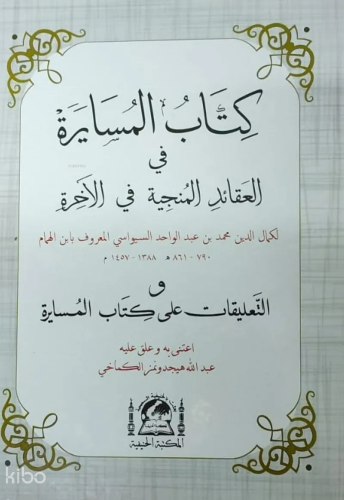 كِتَابُ المُسَايَرَة
في
العَقَائدِ المُنجية في الآخرةِ
لكمال الدين محمد بن عبد الواحد السيواسي المعروف بابن الهمام
٧٩٠ - ٨٦١ هـ ١٣٨٨ - ١٤٥٧ م
و
التَّعليقات على كِتَاب المُسايرة
اعتنى به وعلق عليه
عبد الله هيجدونمز الكماخي
المكتبة الحنيفية
kibo